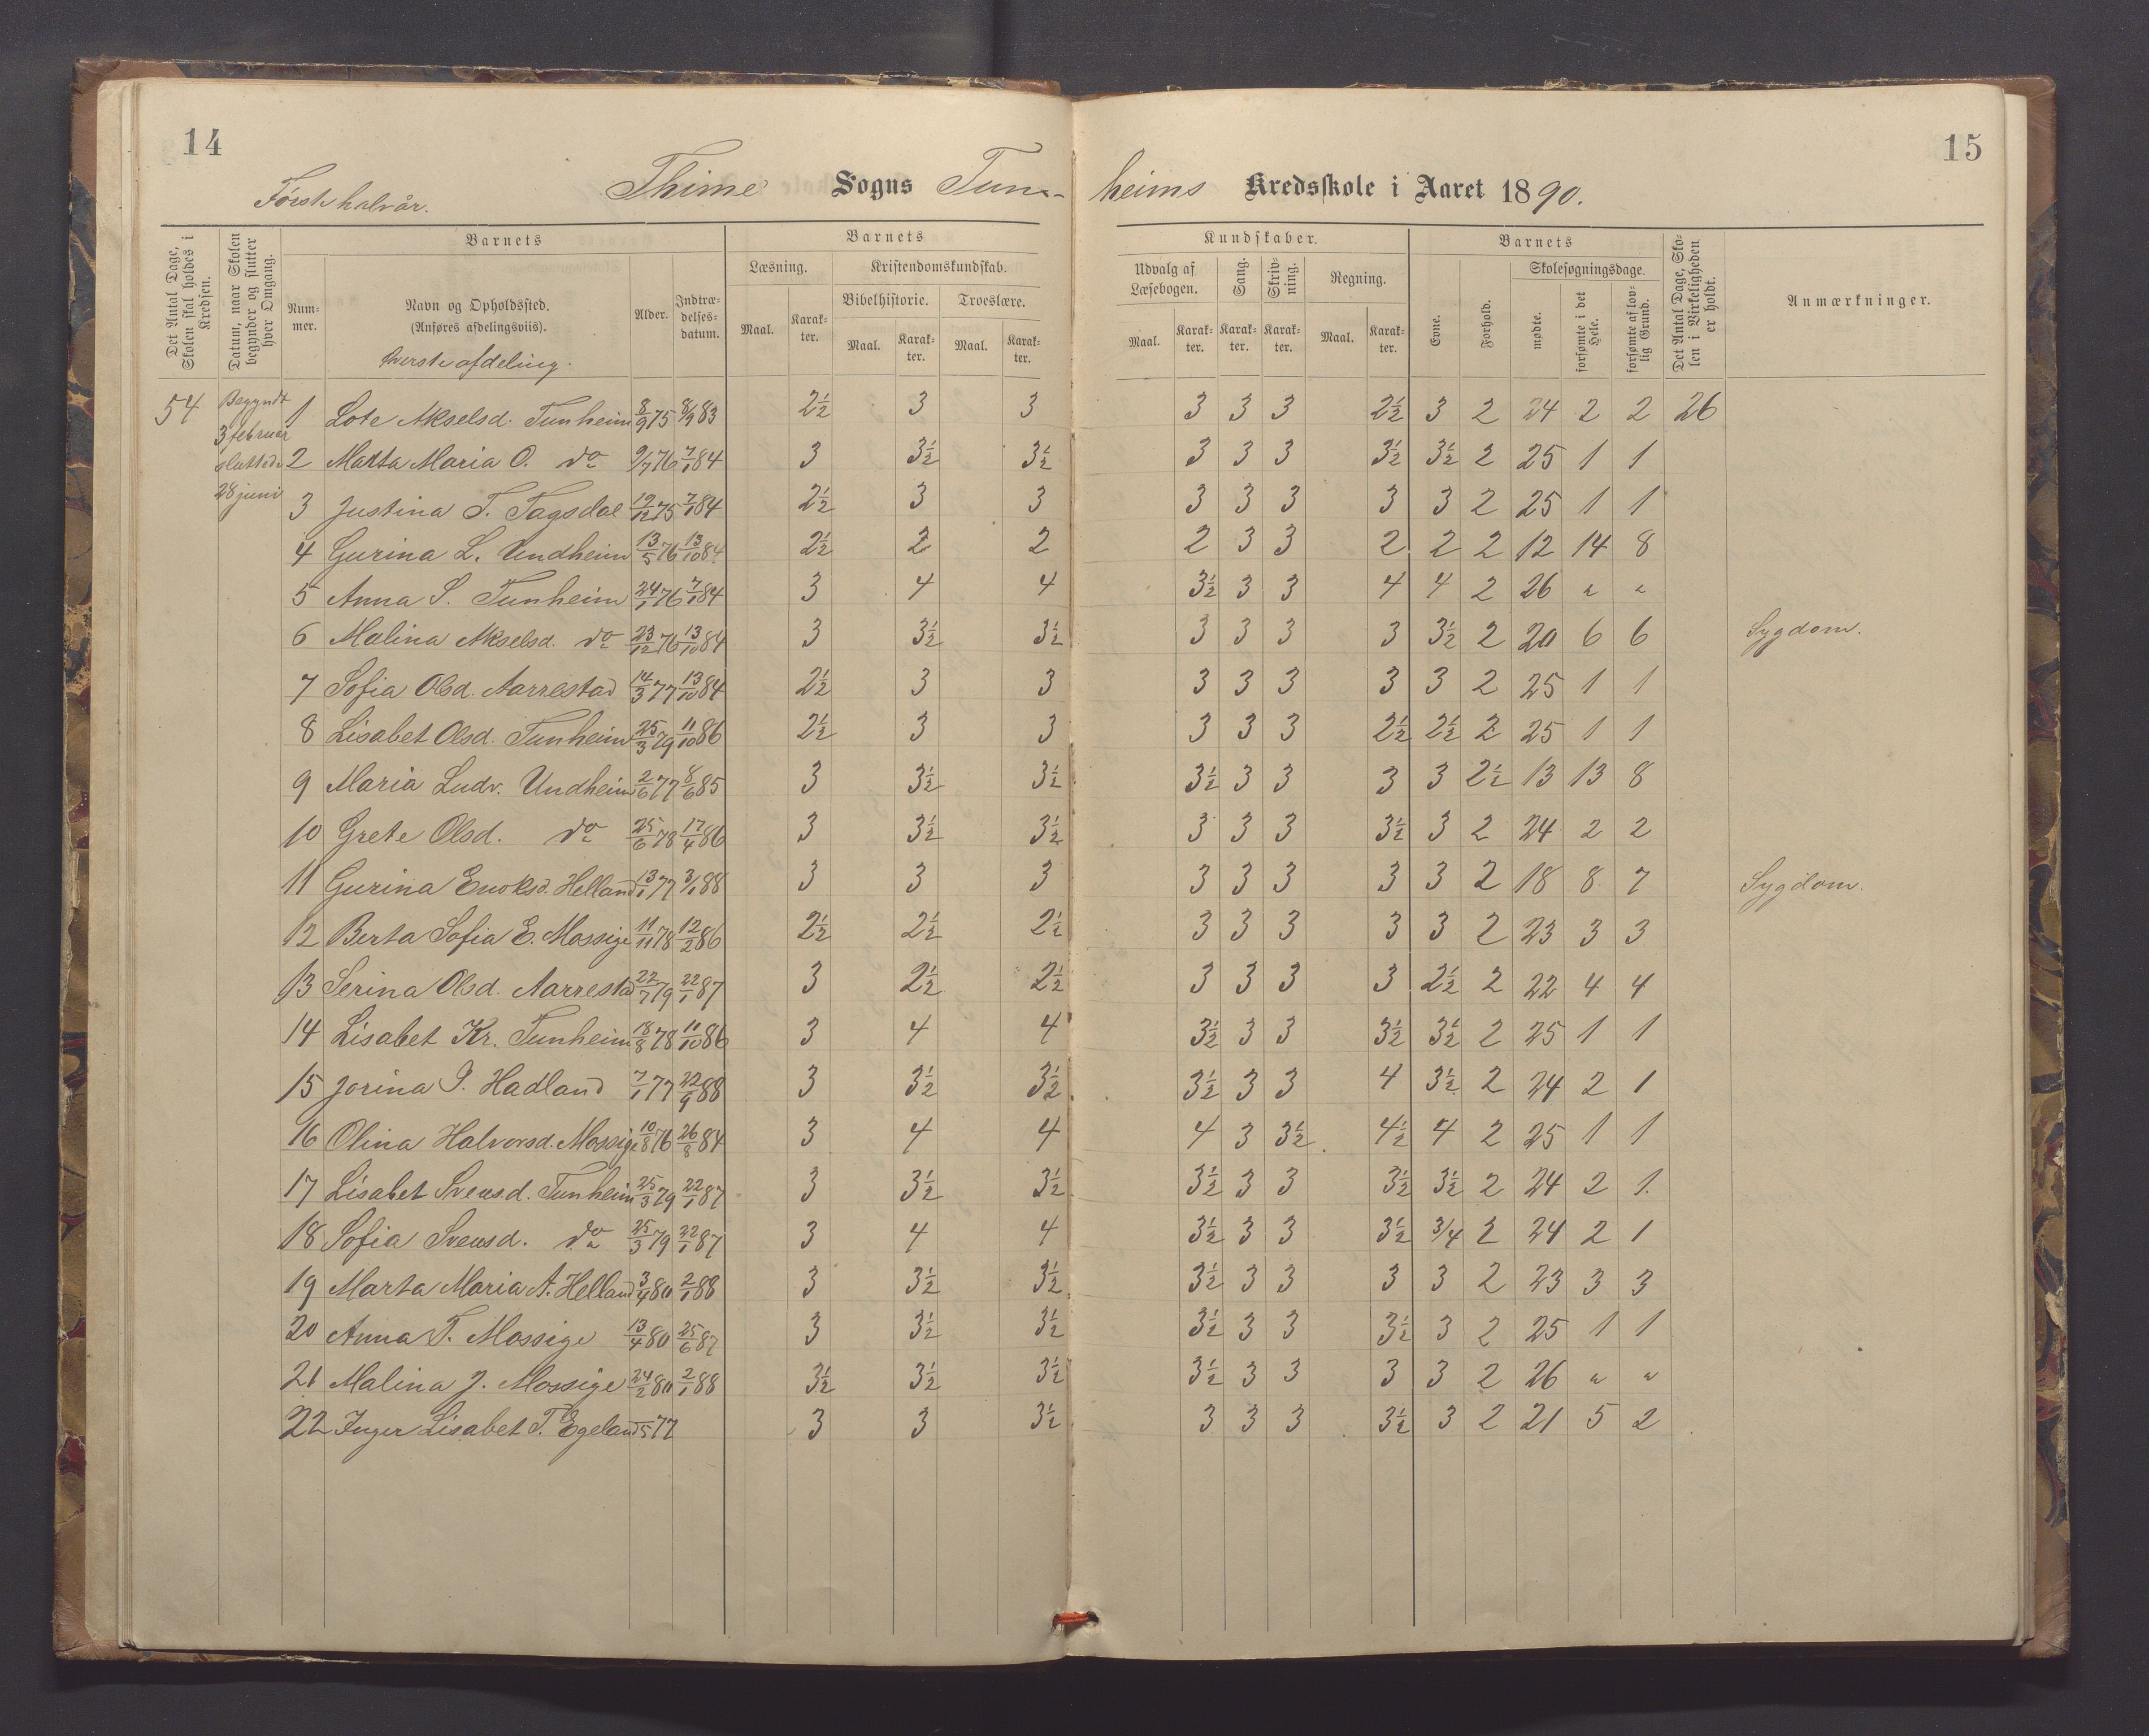 14
15
Først halvår.
Thime Sogns Tun- heims Kredsskole i Aaret 1890.
Det Antal Dage, Skolen skal holdes i Kredsen.
Datum, naar Skolen begynder og slutter hver Omgang.
Barnets
Nummer.
Navn og Opholdssted. (Anføres afdelingsviis).
øverste afdeling.
Alder.
Indtrædelsesdatum.
Barnets
Læsning.
Maal. Karakter.
Kristendomskundskab.
Bibelhistorie.
Maal. Karakter.
Troeslære.
Maal. Karakter.
Kundskaber.
Udvalg af Læsebogen.
Maal. Karakter.
Sang.
Karakter.
Skrivning.
Karakter.
Regning.
Maal. Karakter.
Barnets
Evne.
Forhold.
Skolesøgningsdage.
mødte.
forsømte i det Hele.
forsømte af lovlig Grund.
Det Antal Dage, Skolen i Virkeligheden er holdt.
Anmærkninger.
54
Begyndt
3 februar
sluttede
28 juni
1 Lote Akselsd. Tunheim 8/9 75 8/9 83 2½ 3 3 3 3 3 2½ 3 2 24 2 2 26
2 Marta Maria O. do 9/7 76 7/1 84 3 3½ 3½ 3 3 3 3½ 3½ 2 25 1 1
3 Justina T. Tagsdal 19/12 75 7/1 84 2½ 3 3 3 3 3 3 3 2 25 1 1
4 Gurina L. Undheim 13/5 76 13/10 84 2½ 2 2 2 3 3 2 2 2 12 14 8
5 Anna S. Tunheim 24/1 76 7/1 84 3 4 4 3½ 3 3 4 4 2 26 " "
6 Malina Akselsd. do 23/12 76 13/10 84 3 3½ 3½ 3 3 3 3 3½ 2 20 6 6 Sygdom.
7 Sofia Olsd. Aarrestad 14/3 77 13/10 84 2½ 3 3 3 3 3 3 3 2 25 1 1
8 Lisabet Olsd. Tunheim 25/3 79 11/10 86 2½ 3 3 3 3 3 2½ 2½ 2 25 1 1
9 Maria Ludv. Undheim 2/6 77 8/6 85 3 3½ 3½ 3½ 3 3 3 3 2½ 13 13 8
10 Grete Olsd. do 25/6 78 17/4 86 3 3½ 3½ 3 3 3 3½ 3 2 24 2 2
11 Gurina Enoksd. Helland 13/1 77 3/1 88 3 3 3 3 3 3 3 3 2 18 8 7 Sygdom.
12 Berta Sofia E. Mossige 11/11 78 12/2 86 2½ 2½ 2½ 3 3 3 3 3 2 23 3 3
13 Serina Olsd. Aarrestad 22/7 79 22/1 87 3 2½ 2½ 3 3 3 3 2½ 2 22 4 4
14 Lisabet Kr. Tunheim 18/8 78 11/10 86 3 4 4 3½ 3 3 3½ 3½ 2 25 1 1
15 Jorina I. Hadland 7/1 77 22/9 88 3 3½ 3½ 3½ 3 3 4 3½ 2 24 2 1
16 Olina Halvorsd. Mossige 10/8 76 26/8 84 3 4 4 4 3 3½ 4½ 4 2 25 1 1
17 Lisabet Svensd. Tunheim 25/3 79 22/1 87 3 3½ 3½ 3½ 3 3 3½ 3½ 2 24 2 1
18 Sofia Svensd. do 25/3 79 22/1 87 3 4 4 3½ 3 3 3½ 3/4 2 24 2 1
19 Marta Maria A. Helland 3/4 80 2/1 88 3 3½ 3½ 3½ 3 3 3 3 2 23 3 3
20 Anna T. Mossige 13/4 80 25/6 87 3 3½ 3½ 3½ 3 3 3½ 3 2 25 1 1
21 Malina J. Mossige 24/2 80 2/1 88 3½ 3½ 3½ 3½ 3 3 3 3 2 26 " "
22 Inger Lisabet T. Egeland 77 3 3 3½ 3 3 3 3½ 3 2 21 5 2